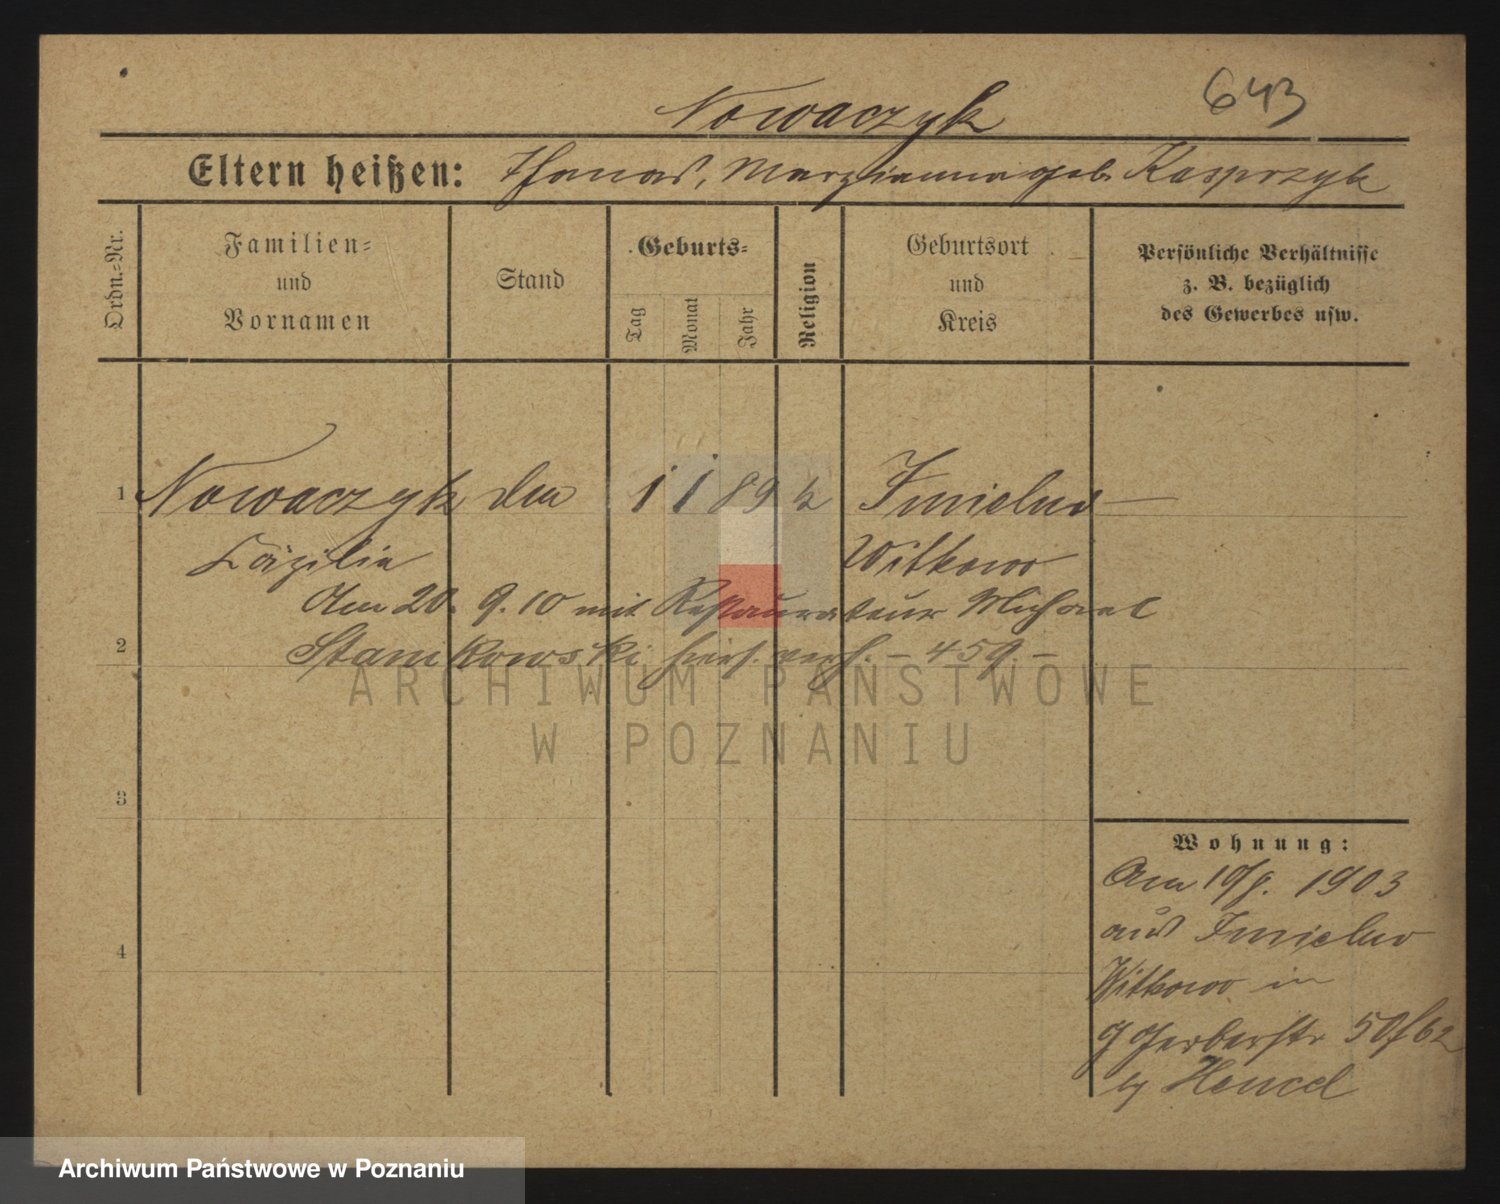 643
Nowaczyk
Eltern heißen: Thomas, Marzianna geb. Kasprzyk
Ordn.-Nr.
Familien-
und
Vornamen
Stand
Geburts-
Tag
Monat
Jahr
Religion
Geburtsort
und
Kreis
Persönliche Verhältnisse
z. B. bezüglich
des Gewerbes usw.
1 Nowaczyk 1 1 89 Imielno
Cäzilie Witkowo
Am 20. 9. 10 mit Restaurateur Michael
2 Stanikowski hier verh. – 459. –
ARCHIWUM PAŃSTWOWE
W POZNANIU
3
4
Wohnung:
Am 1903
aus Imielno
Witkowo in
Gerberstr 50
Hencel
Archiwum Państwowe w Poznaniu